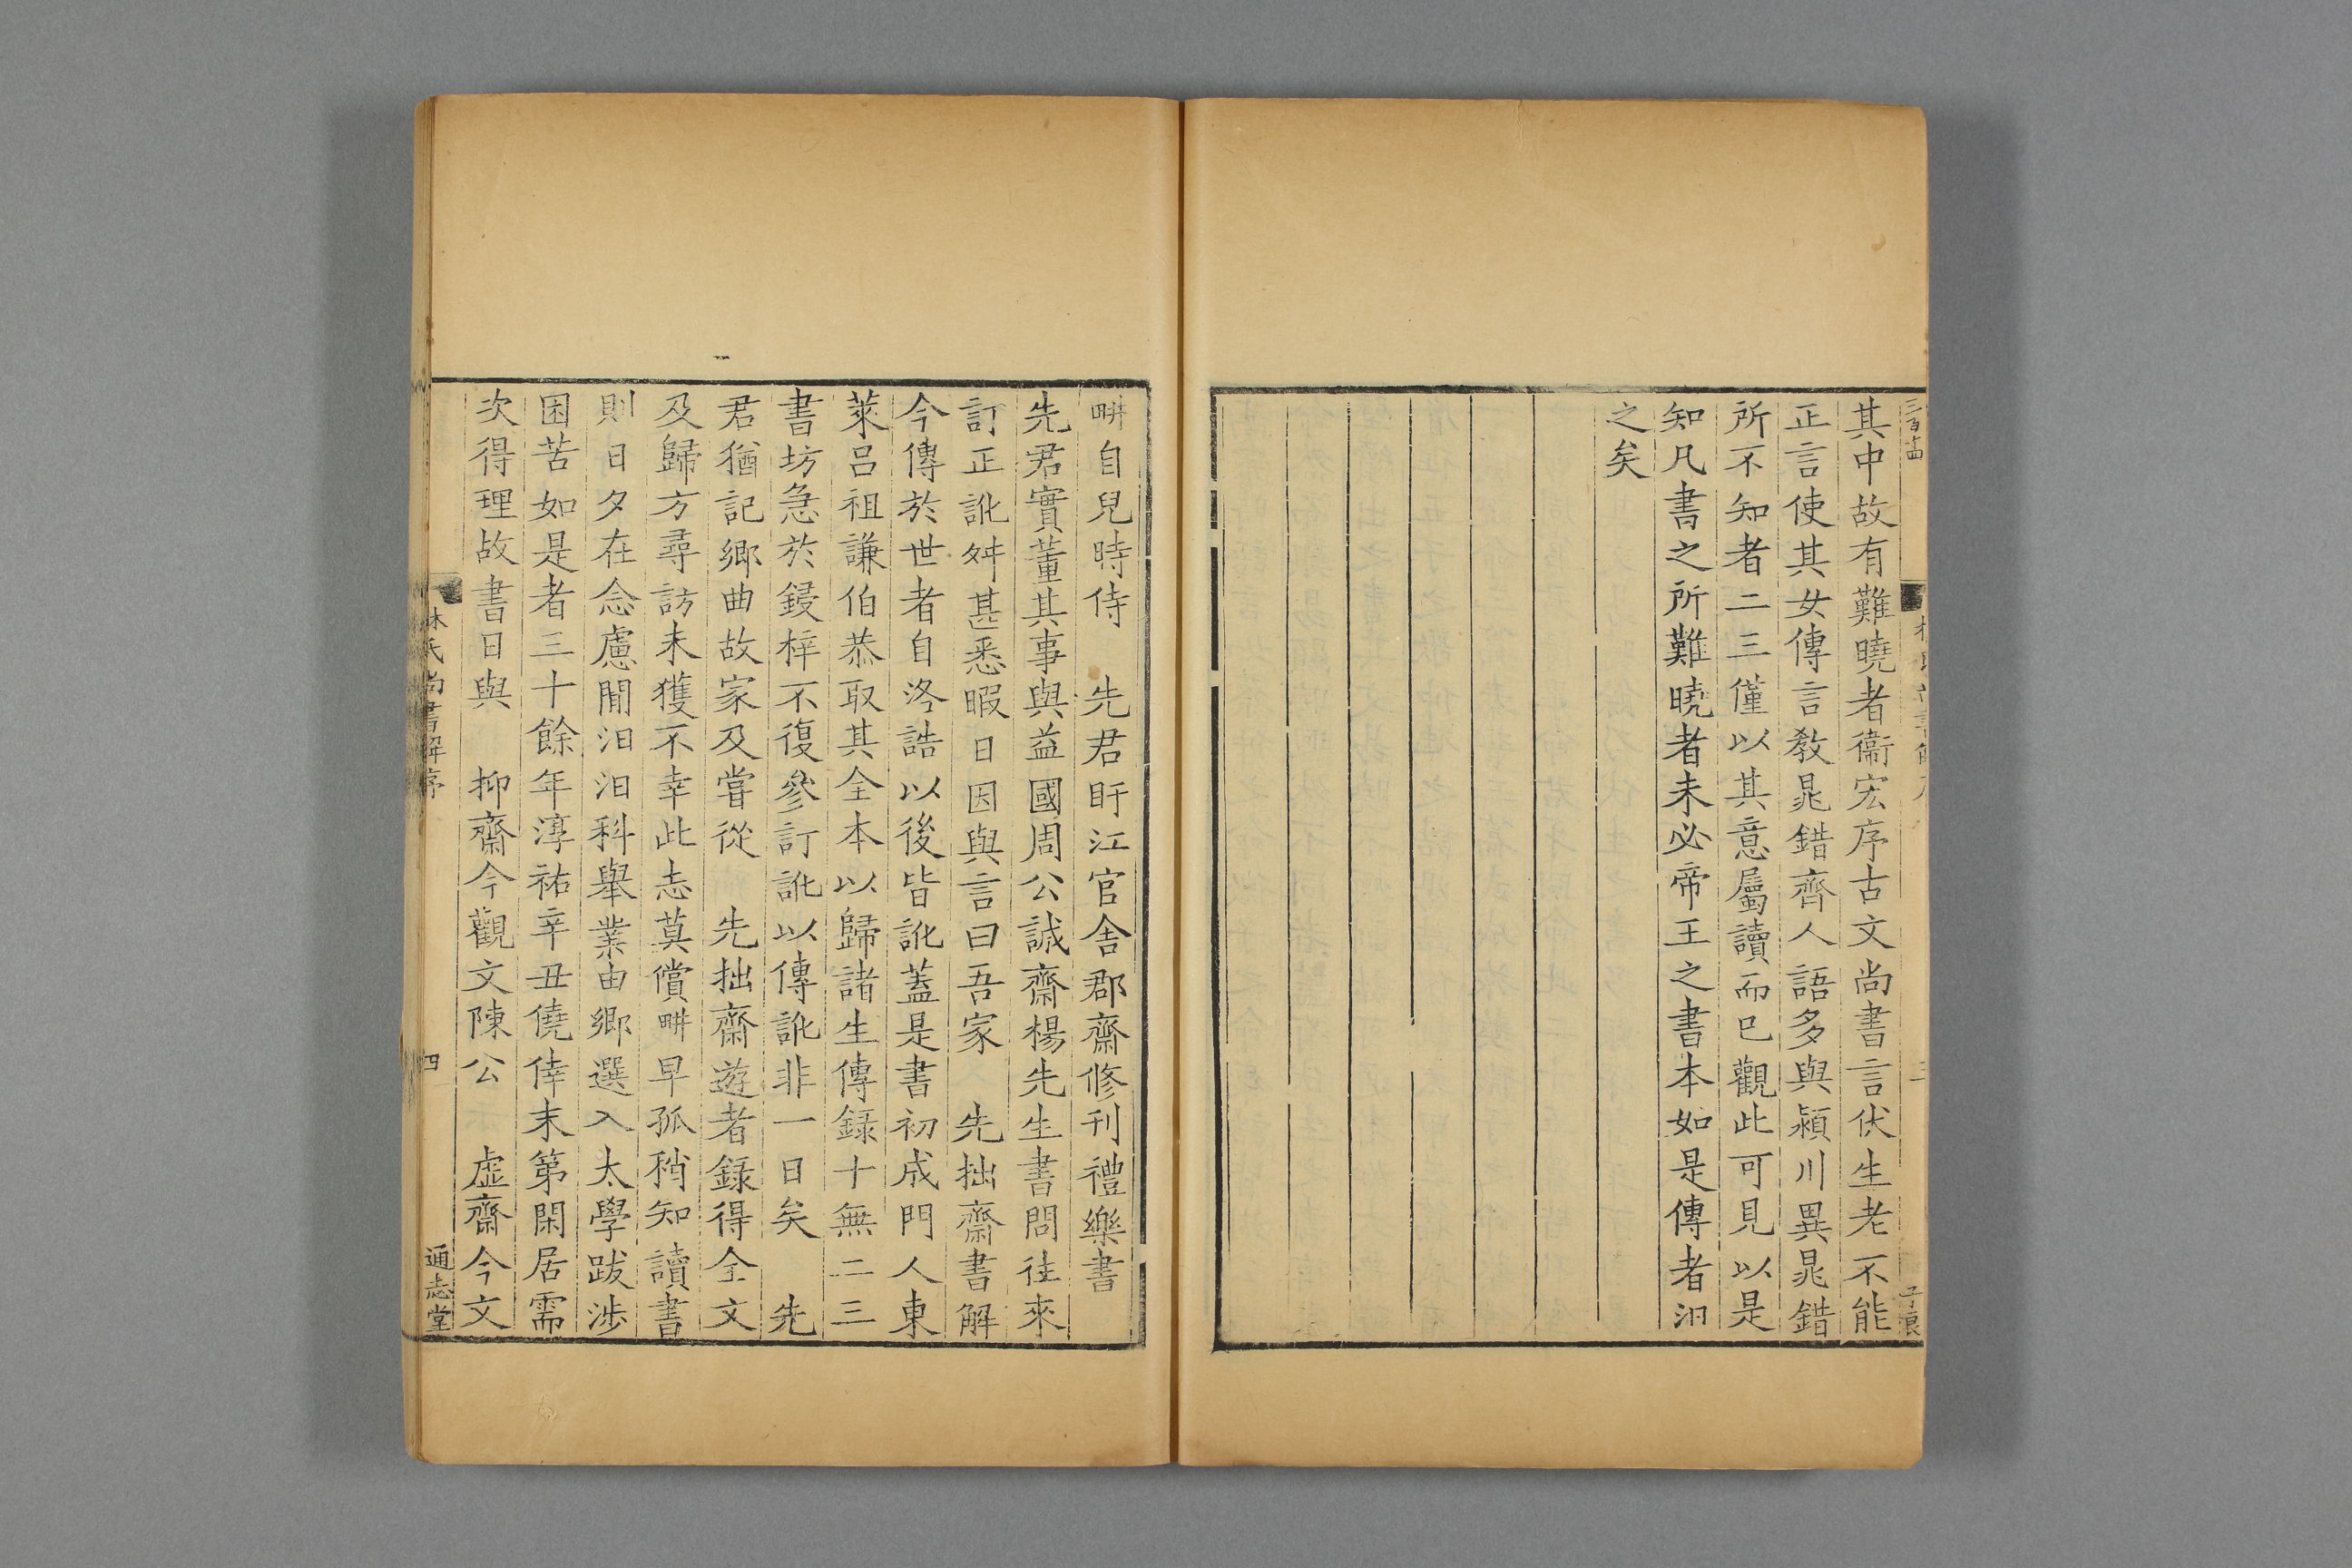 其中故有難曉者衞宏序古文尚書言伏生老不能
正言使其女傳言敎晁錯齊人語多與潁川異晁錯
所不知者二三僅以其意屬讀而已觀此可見以是
知凡書之所難曉者未必帝王之書本如是傳者汩
之矣
畊自兒時侍　先君盱江官舍郡齋修刊禮樂書
先君實董其事與益國周公誠齋楊先生書問往來
訂正訛舛甚悉暇日因與言曰吾家　先拙齋書解
今傳於世者自洛誥以後皆訛蓋是書初成門人東
萊呂祖謙伯恭取其全本以歸諸生傳錄十無二三
書坊急於鋟梓不復參訂訛以傳訛非一日矣　先
君猶記鄉曲故家及嘗從　先拙齋遊者錄得全文
及歸方尋訪未獲不幸此志莫償畊早孤稍知讀書
則日夕在念慮閒汩汩科舉業由鄉選入太學跋涉
困苦如是者三十餘年淳祐辛丑僥倖末第閑居需
次得理故書日與　抑齋今觀文陳公　虛齋今文
林氏尚書解序
四
通志堂